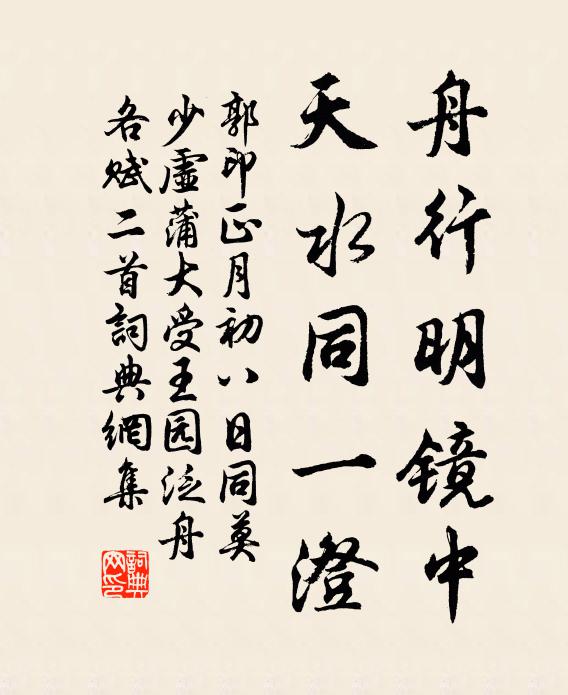 舟行明镜中
天水同一澄
郭印正月初八日同莫
少虚蒲大受王园泛舟
各赋二首詞典網集
詞典
网印